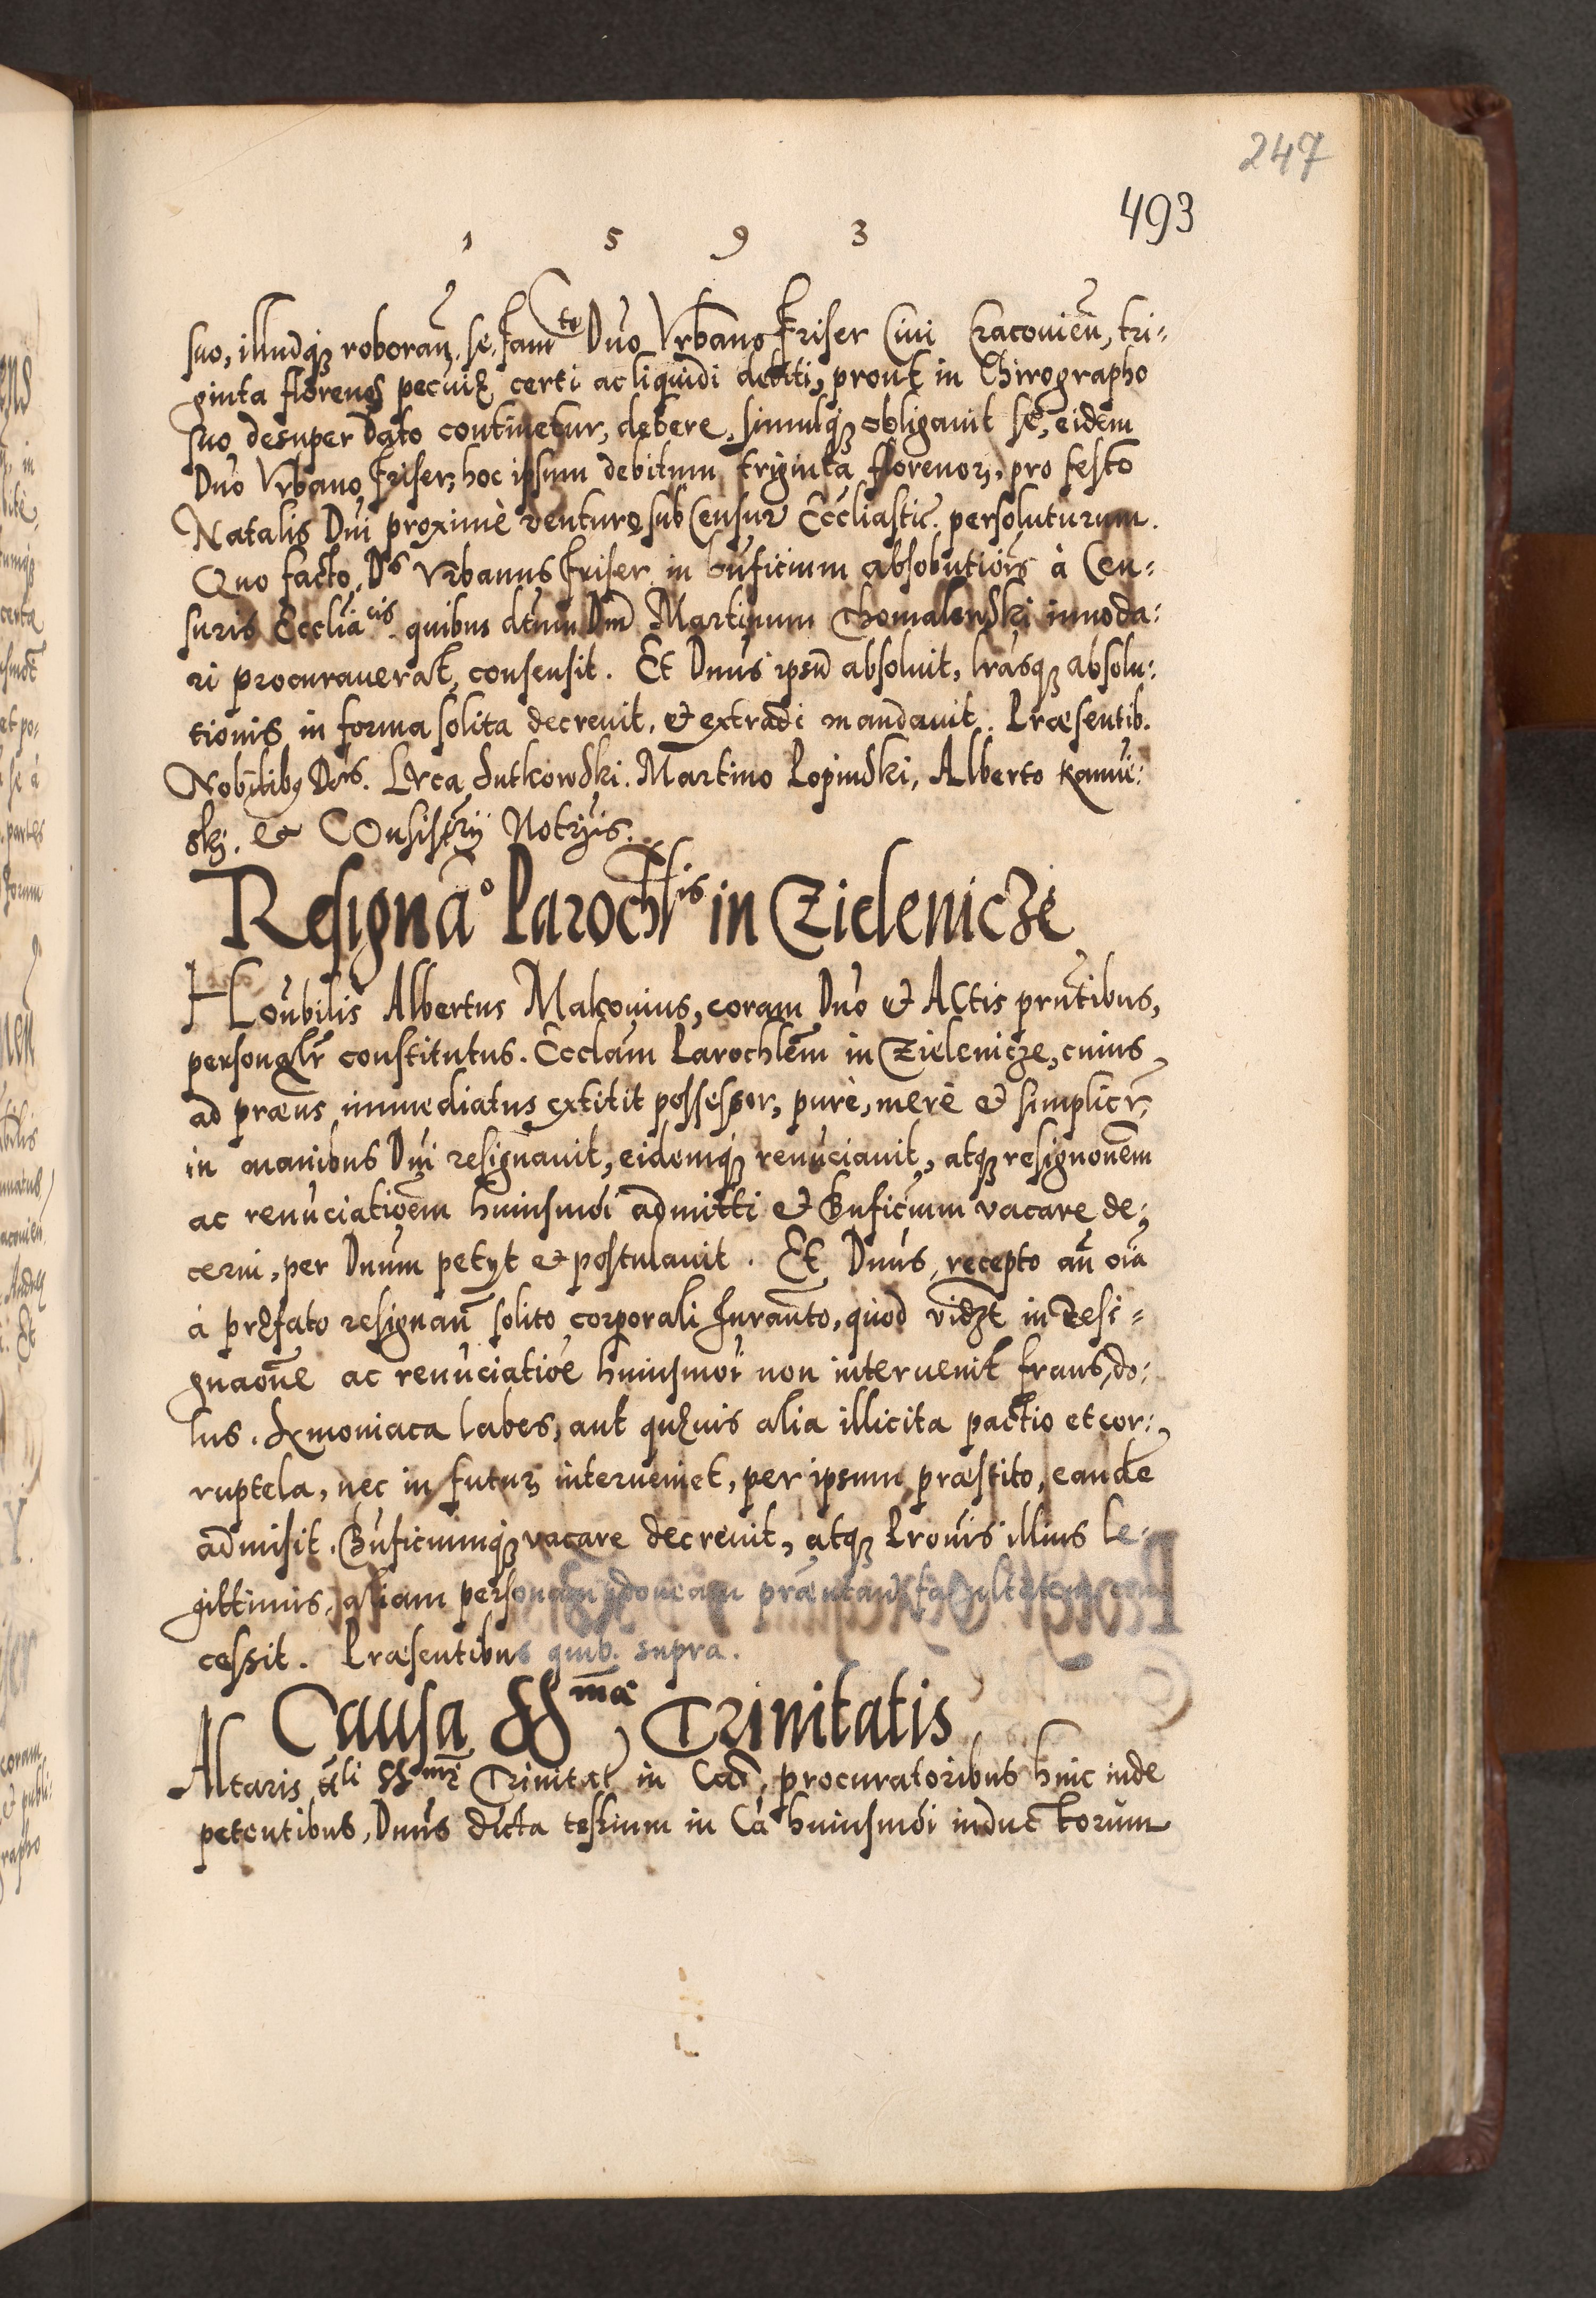 247
493
1 5 9 3
suo, illudq́ꝫ roboran̄. se. Famto Dn̄o Vrbano Friser Ciui Cracouien̄, tri-
ginta florenos pecuię certi ac liquidi debiti, prout in Chirographo
suo desuper dato continetur, debere, simulq́ꝫ obligauit se, eidem
Dn̄o Vrbano Friser, hoc ipsum debitum triginta florenoꝝ, pro festo
Natalis Dn̄i proximè venturo, sub Censur Eccl̄iastic. persoluturum.
Quo facto, Ds Vrbanus Friser in bn̄ficium absolutiōis à Cen-
suris Eccl̄iacis. quibus dc̄tum Dn̄m Martinum Chomalewski innoda-
ri procurauerat, consensit. Et Dn̄us ipsū absoluit, l̄rasq́ꝫ absolu-
tionis in forma solita decreuit, et extradi mandauit. Præsentib.
Nobilibꝯ Dn̄is. Luca Sutkowski. Martino Lopinski, Alberto Kamień-
skj. et COnsistr̄ij Notr̄ijs.
Resignāo Parochlis in Czielenicze
HOn̄bilis Albertus Makouius, coram Dn̄o et ACtis pn̄tibus,
personalr̄ constitutus. Eccl̄am Parochlēm in Czielenicze, cuius
ad præns immediatus extitit possessor, purè, merè et simplicr̄,
in manibus Dn̄i resignauit, eidemq́ꝫ renūciauit, atqꝫ resignōnem
ac renūciatiōem huiusmōi admitti et Bn̄ficium vacare de-
cerni, per Dn̄um petijt et postulauit. Et Dn̄us, recepto an̄ oīa
à pręfato resignan̄ solito corporali Iuran̄to, quod vidꝫt in resi-
gnaōne ac renūciatiōe huiusmōi non interuenit fraus, do-
lus. Symoniaca labes, aut quęuis alia illicita pactio et cor-
ruptela, nec in futurꝫ interueniet, per ipsum præstito, eandē
admisit. Bn̄ficiumq́ꝫ vacare decreuit, atqꝫ Pronis illius le-
gittimis, aliam personam idoneam præntandi facultatem con
cessit. Præsentibus quib. supra.
Causa SSmæ Trinitatis
Altaris ttli SSmæ Trinitat in Cað, procuratoribus hinc inde
petentibus, Dn̄us dicta testium in Cā huiusmōi inductorum